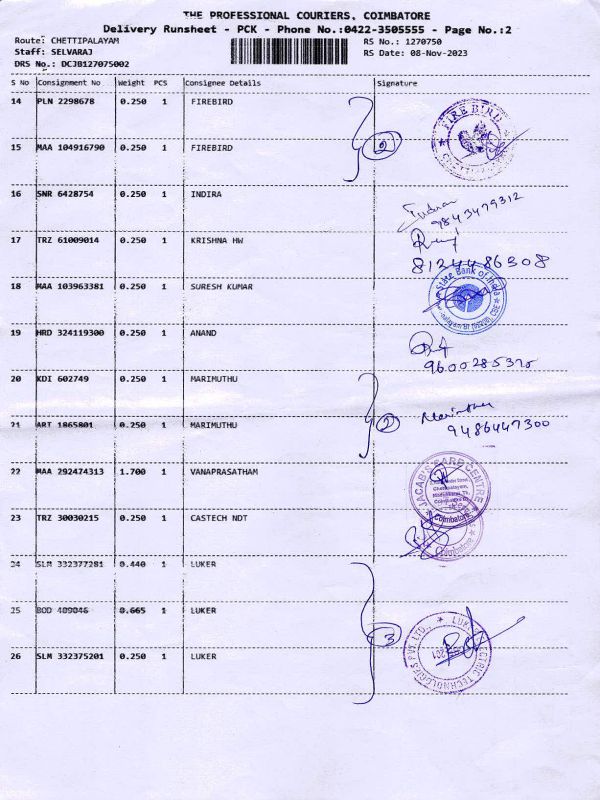 THE PROFESSIONAL COURIERS, COIMBATORE
Delivery Runsheet - PCK - Phone No.:0422-3505555 - Page No.:2
Route: CHETTIPALAYAM RS No.: 1270750
Staff: SELVARAJ RS Date: 08-Nov-2023
DRS No.: DCJB127075002
S No Consignment No Weight PCS Consignee Details Signature
14 PLN 2298678 0.250 1 FIREBIRD
FIRE BIRD
2
15 MAA 104916790 0.250 1 FIREBIRD
16 SNR 6428754 0.250 1 INDIRA
Indra
9843479312
17 TRZ 61009014 0.250 1 KRISHNA HW
8124486308
18 MAA 103963381 0.250 1 SURESH KUMAR
State Bank of India
19 HRD 324119300 0.250 1 ANAND
9600285375
20 KDI 602749 0.250 1 MARIMUTHU
Marimuthu
2
21 ART 1865801 0.250 1 MARIMUTHU
9486447300
22 MAA 292474313 1.700 1 VANAPRASATHAM
JACAB'S CARE CENTRE
Coimbatore
23 TRZ 30030215 0.250 1 CASTECH NDT
Coimbatore
24 SLM 332377281 0.440 1 LUKER
25 BOD 489046 0.665 1 LUKER
3
LUKER ELECTRIC TECHNOLOGIES PVT. LTD.
26 SLM 332375201 0.250 1 LUKER